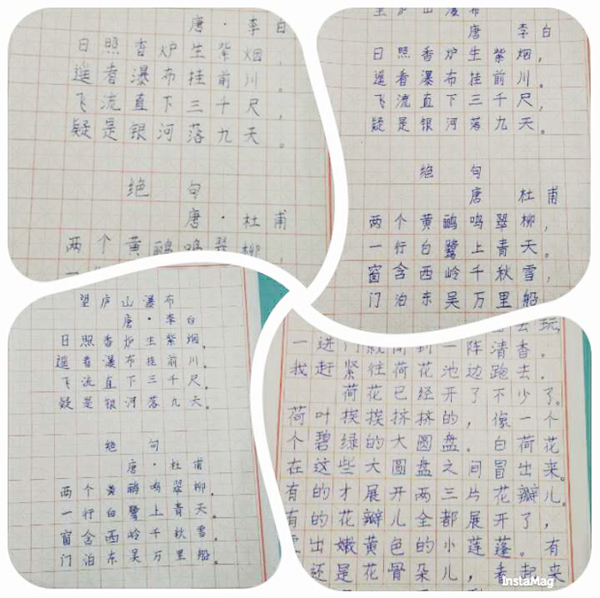 唐·李白
日照香炉生紫烟,
遥看瀑布挂前川。
飞流直下三千尺,
疑是银河落九天。
绝句
唐·杜甫
两个黄鹂鸣翠柳,
唐 李白
日照香炉生紫烟,
遥看瀑布挂前川。
飞流直下三千尺,
疑是银河落九天。
绝句
唐 杜甫
两个黄鹂鸣翠柳,
一行白鹭上青天。
窗含西岭千秋雪,
门泊东吴万里船。
望庐山瀑布
唐·李白
日照香炉生紫烟,
遥看瀑布挂前川。
飞流直下三千尺,
疑是银河落九天。
绝句
唐·杜甫
两个黄鹂鸣翠柳,
一行白鹭上青天。
窗含西岭千秋雪,
门泊东吴万里船。
去玩,
一进门就闻到一阵清香。
我赶紧往荷花池边跑去。
荷花已经开了不少了。
荷叶挨挨挤挤的,像一个
个碧绿的大圆盘。白荷花
在这些大圆盘之间冒出来。
有的才展开两三片花瓣儿。
有的花瓣儿全都展开了,
出嫩黄色的小莲蓬。有
还是花骨朵儿,看起来
InstaMag